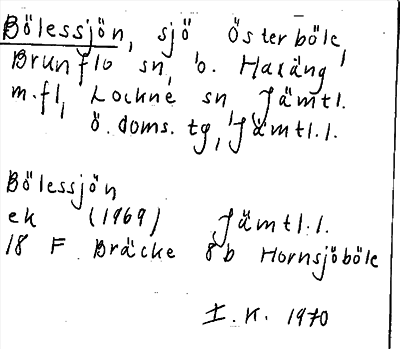 Bölessjön, sjö Österböle,
Brunflo sn, o. Haxäng
m.fl, Lockne sn Jämtl.
ö. doms. tg, Jämtl.l.
Bölessjön
ek (1969) Jämtl.l.
18 F Bräcke 8b Hornsjöböle
I.K. 1970